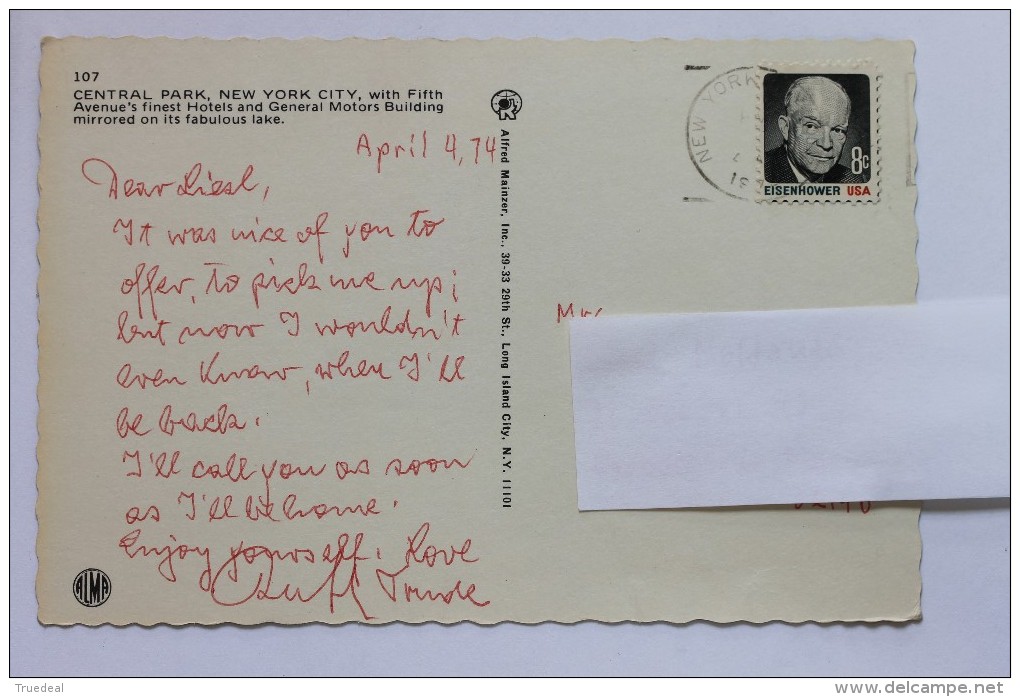 107
CENTRAL PARK, NEW YORK CITY, with Fifth
Avenue's finest Hotels and General Motors Building
mirrored on its fabulous lake.
April 4, 74
Dear Liesl,
It was nice of you to
offer, to pick me up;
but now I wouldn't
even know, when I'll
be back.
I'll call you as soon
as I'll be home.
Enjoy yourself. Love
Trude
ALMA
Alfred Mainzer, Inc., 39-33 29th St., Long Island City, N.Y. 11101
NEW YORK
8c
EISENHOWER USA
Truedeal
www.delcampe.net